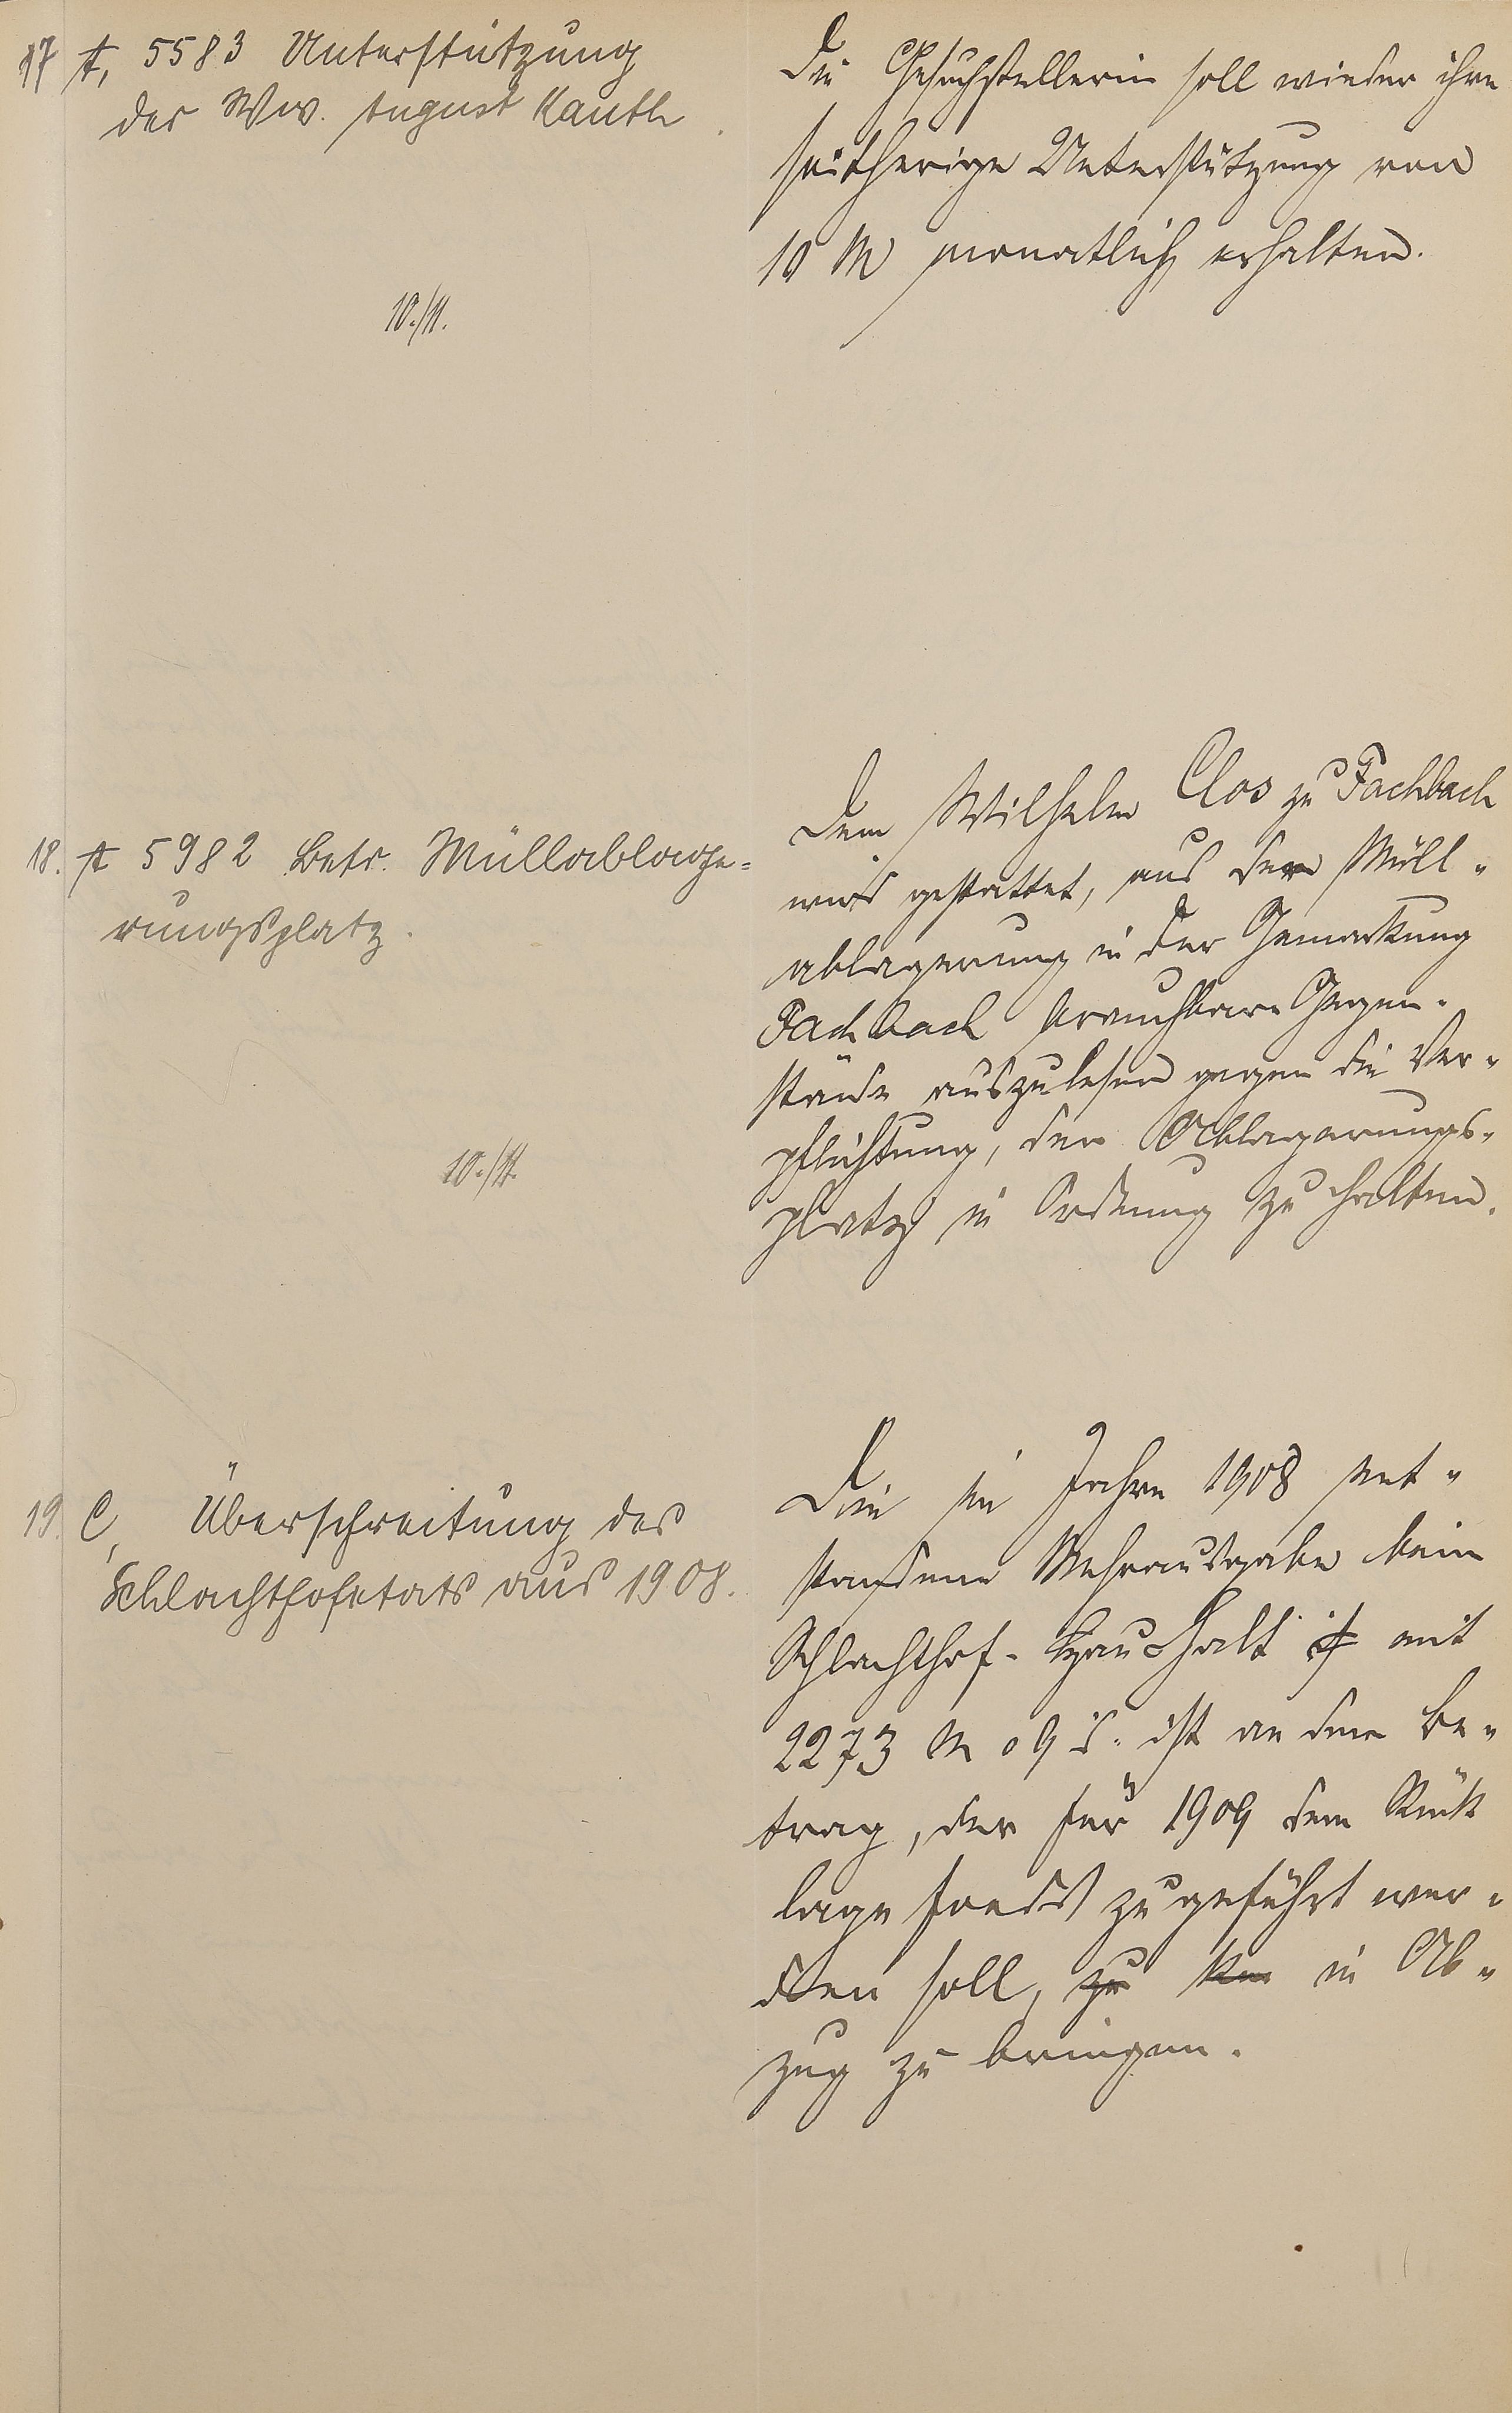 17 A, 5583 Unterstützung
der Ww. August Kauth
Die Gesuchstellerin soll wieder ihre
seitherige Unterstützung von
10 M monatlich erhalten.
10./11.
18. A 5982 Betr. Müllablage-
rungsplatz.
Dem Wilhelm Clos zu Fachbach
wird gestattet, aus der Müll-
ablagerung in der Gemarkung
Fachbach brauchbare Gegen-
stände auszulesen gegen die Ver-
pflichtung, den Ablagerungs-
platz in Ordnung zu halten.
10./11.
19. C, Überschreitung des
Schlachthofetats aus 1908.
Die im Jahre 1908 ent-
standene Mehrausgabe beim
Schlachthof-Haushalt mit
2273 M 09 ist an dem Be-
trag, der für 1909 dem Rück
lage fonds zugeführt wer-
den soll, zu in Ab-
zug zu bringen.